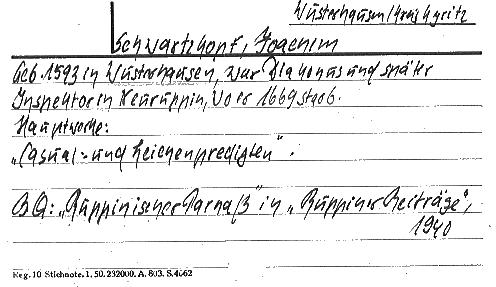 Wusterhausen/Kreis Kyritz
Schwartzkopf, Joachim
Geb. 1593 in Wusterhausen, war Diakonus und später
Inspektor in Neuruppin, wo er 1669 starb.
Hauptwerke:
„Casual- und Leichenpredigten".
BQ: „Ruppinischer Parnaß" in „Ruppiner Beiträge",
1940
Reg. 10 Stichnote. 1. 50. 232000. A. 803. S. 4662